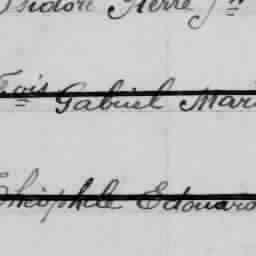 Isidore Pierre Jn
Fois Gabriel Mari
Théophile Edouard